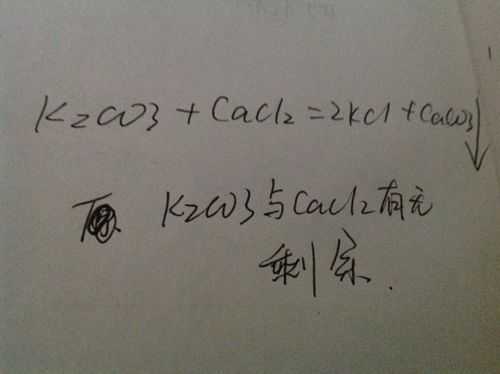 K2CO3 + CaCl2 = 2KCl + CaCO3↓
K2CO3与CaCl2有无
剩余.